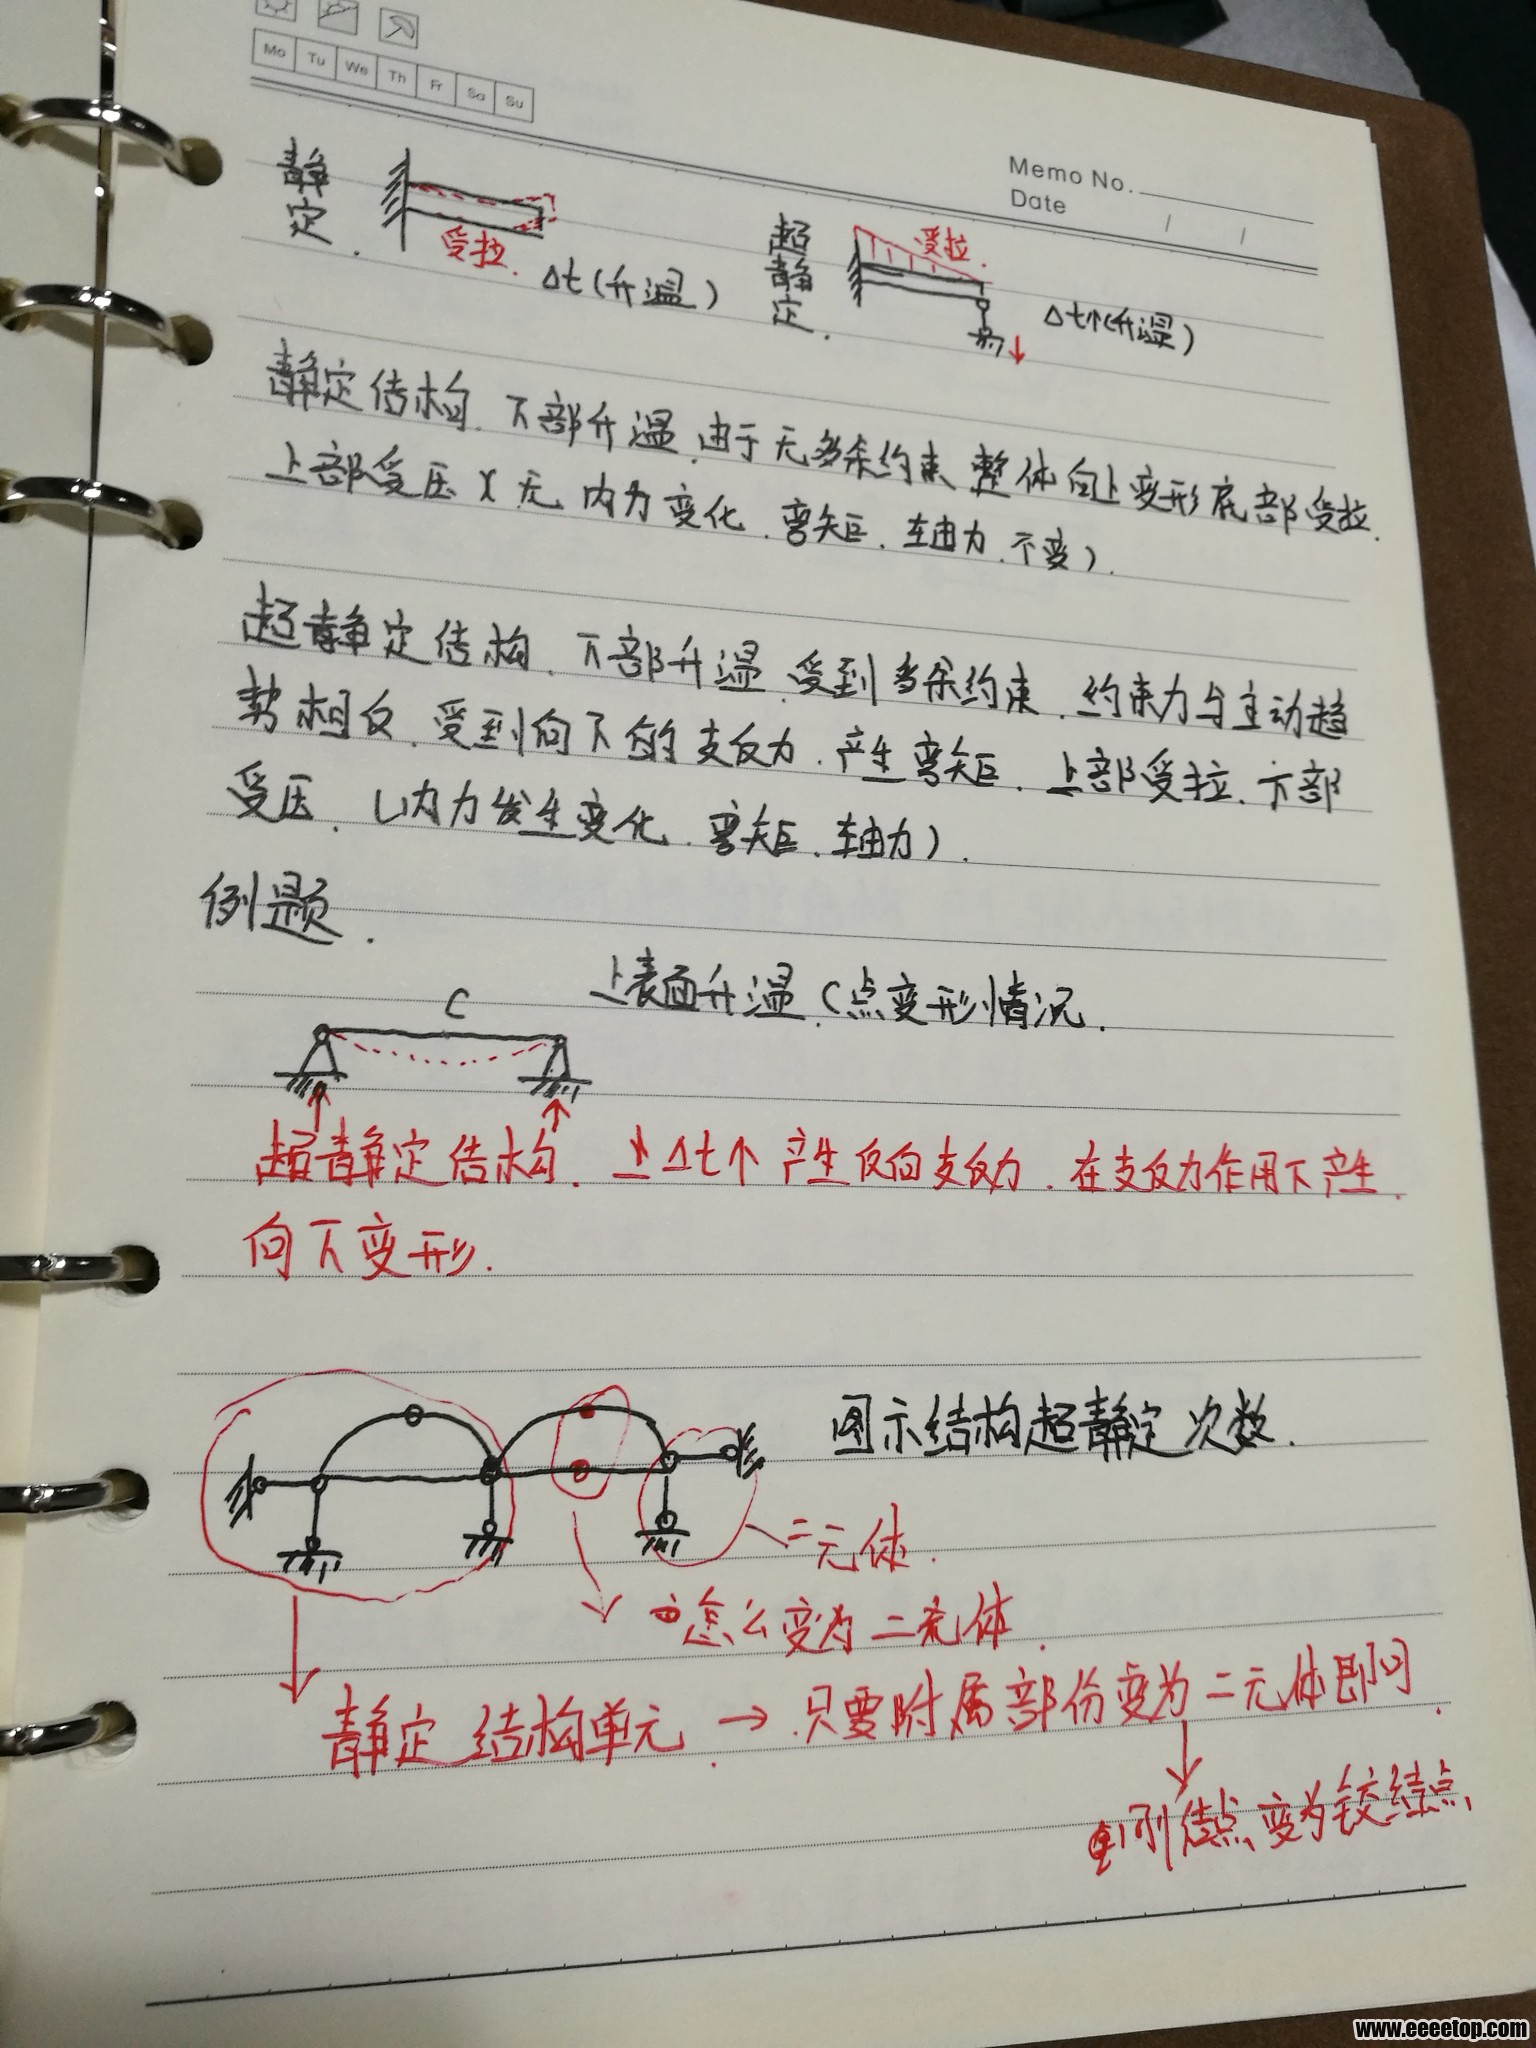 Mo Tu We Th Fr Sa Su
Memo No.
Date / /
静定.
受拉.
Δt(升温)
超静定.
受拉.
Δt↑(升温)
静定结构.下部升温.由于无多余约束 整体向上变形底部受拉.
上部受压(无内力变化.弯矩.轴力.不变).
超静定结构.下部升温.受到多余约束.约束力与主动趋
势相反.受到向下的支反力.产生弯矩.上部受拉.下部
受压.(内力发生变化.弯矩.轴力).
例题.
C
上表面升温.C点变形情况.
超静定结构.上Δt↑产生反向支反力.在支反力作用下产生
向下变形.
图示结构超静定次数.
二元体.
怎么变为二元体.
静定结构单元.→只要附属部份变为二元体即可.
刚结点变为铰结点
www.eeeetop.com